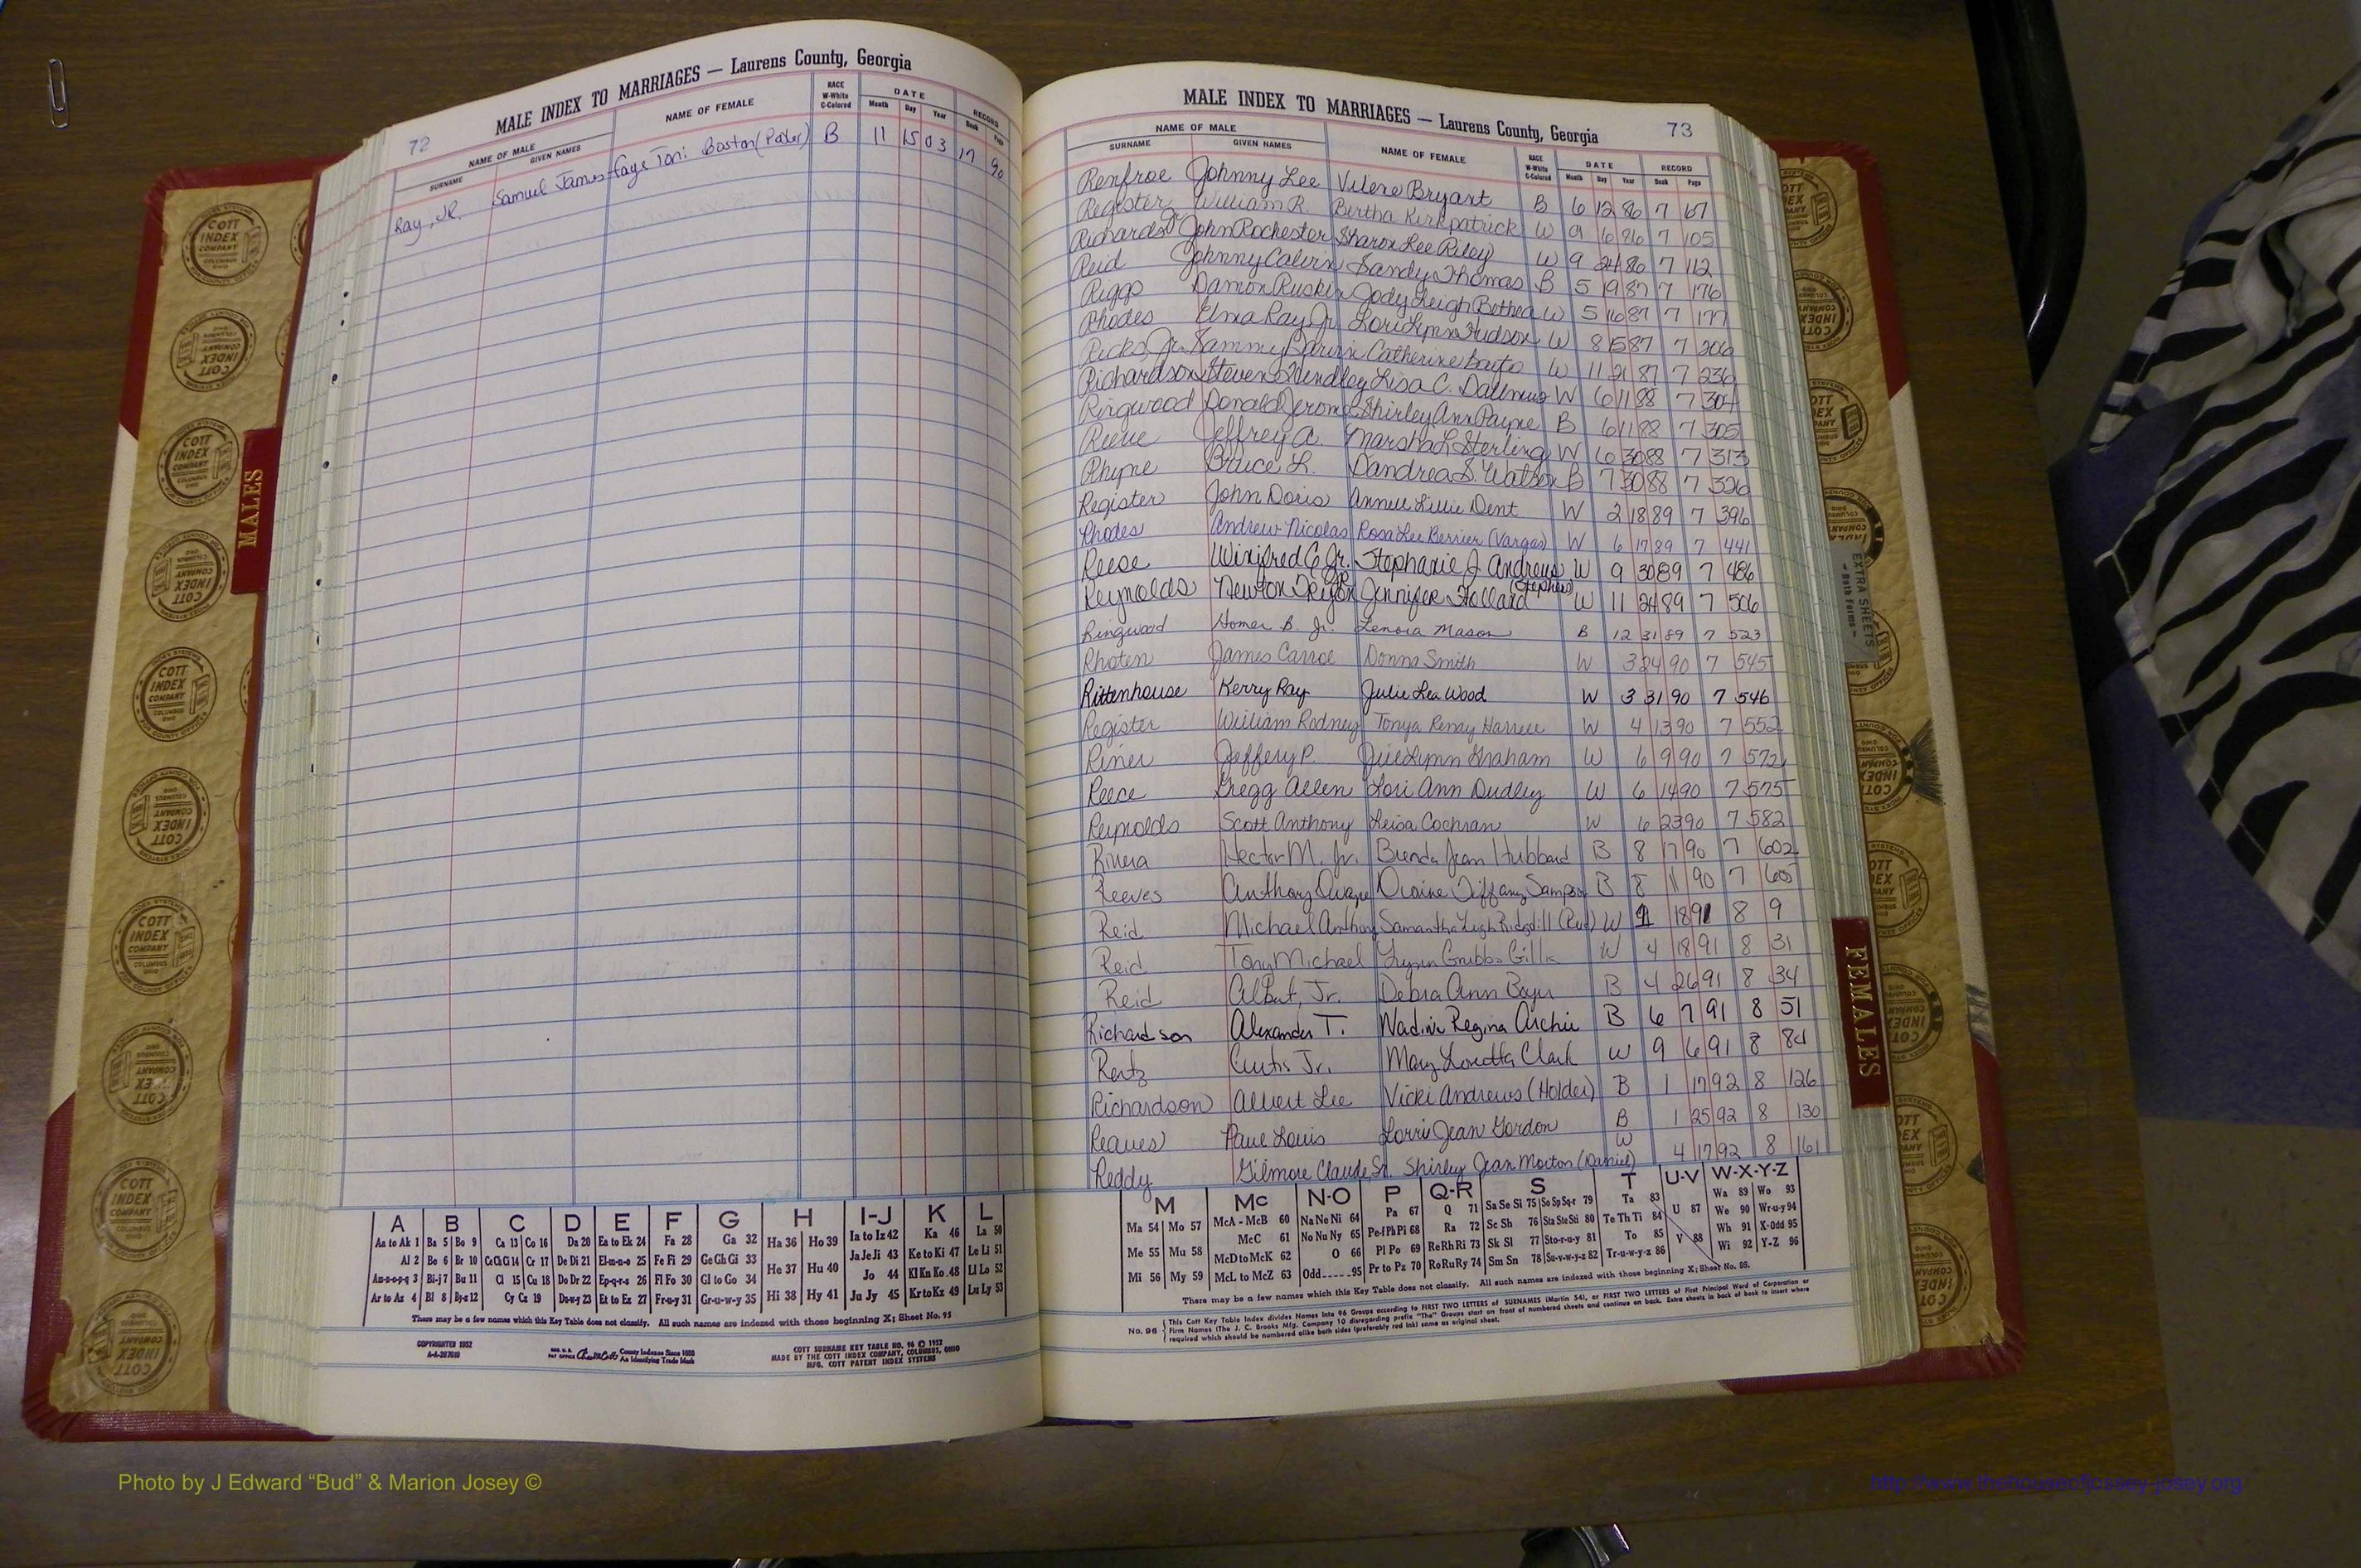 72
MALE INDEX TO MARRIAGES — Laurens County, Georgia
NAME OF MALE
SURNAME GIVEN NAMES NAME OF FEMALE RACE W-White C-Colored DATE Month Day Year RECORD Book Page
Ray, JR. Samuel James Faye Toni Boston B 11 15 03 17 90
MALE INDEX TO MARRIAGES — Laurens County, Georgia 73
NAME OF MALE
SURNAME GIVEN NAMES NAME OF FEMALE RACE W-White C-Colored DATE Month Day Year RECORD Book Page
Renfroe Johnny Lee Vilene Bryant B 6 12 86 7 67
Register William R. Bertha Kirkpatrick W 9 6 86 7 105
John Rochester Sharon Lee Riley W 9 24 86 7 112
Reid Johnny Calvin Sandy Thomas B 5 9 87 7 176
Riggs Damon Ruskin Jody Leigh Bethea W 5 16 87 7 177
Rhodes Elma Ray Jr. Lori Lynn Hudson W 8 15 87 7 206
Ricks, Jr. Sammy Catherine W 11 21 87 7 236
Richardson Steven Lisa C. W 6 11 88 7 304
Ringwood Donald Jerome Shirley Ann Payne B 6 11 88 7 305
Jeffrey A. Marsha L Sterling W 6 30 88 7 313
Rhyne Bruce L. Dandrea S. Watson B 7 30 88 7 326
Register John Doris Annell Lillie Dent W 2 18 89 7 396
Rhodes Andrew Nicolas Rosa Lee Berrier (Vargas) W 6 17 89 7 441
Reese Winifred C Jr. Stephanie J Andrews W 9 30 89 7 486
Reynolds Newton Jennifer Holland (Stephens) W 11 24 89 7 506
Ringwood Homer B. Jr. Lenora Mason B 12 31 89 7 523
Rhoten James Carroe Donna Smith W 3 24 90 7 545
Rittenhouse Kerry Ray Julie Lea Wood W 3 31 90 7 546
Register William Rodney Tonya Renay Harrell W 4 13 90 7 552
Riner Jeffery P. Jill Lynn Graham W 6 9 90 7 572
Reece Gregg Allen Lori Ann Dudley W 6 14 90 7 575
Reynolds Scott Anthony Leisa Cochran W 6 23 90 7 582
Rivera Hector M. Jr. Brenda Jean Hubbard B 8 17 90 7 602
Reeves Anthony Dwayne Tiffany Sampson B 8 11 90 7 605
Reid Michael Anthony Samantha Leigh Ridgdill (Reid) W 1 18 91 8 9
Reid Tony Michael Lynn Grubbs Gillis W 4 18 91 8 31
Reid Albert, Jr. Debra Ann B 4 26 91 8 34
Richardson Alexander T. Nadine Regina Archie B 6 7 91 8 51
Rentz Curtis Jr. Mary Loretta Clark W 9 6 91 8 84
Richardson Albert Lee Vicki Andrews (Holder) B 1 17 92 8 126
Reaves Paul Louis Lorri Jean Gordon B 1 25 92 8 130
Reddy Gilmore Claude, Sr. Shirley Jean Morton (Daniel) W 4 17 92 8 161
A B C D E F G H I-J K L
Aa to Ak 1 Ba 5 Bo 9 Ca 13 Co 16 Da 20 Ea to Ek 24 Fa 28 Ga 32 Ha 36 Ho 39 Ia to Iz 42 Ka 46 La 50
Al 2 Be 6 Br 10 Ce Ch Ci 14 Cr 17 De Di 21 El-m-n-o 25 Fe Fi 29 Ge Gh Gi 33 He 37 Hu 40 Ja Je Ji 43 Ke to Ki 47 Le Li 51
Am-n-o-p-q 3 Bi-j 7 Bu 11 Cl 15 Cu 18 Do Dr 22 Ep-q-r-s 26 Fl Fo 30 Gl to Go 34 Jo 44 Kl Kn Ko 48 Ll Lo 52
Ar to Az 4 Bl 8 By-z 12 Cy Cz 19 Du-w-y 23 Et to Ez 27 Fr-u-y 31 Gr-u-w-y 35 Hi 38 Hy 41 Ju Jy 45 Kr to Kz 49 Lu Ly 53
There may be a few names which this Key Table does not classify. All such names are indexed with those beginning X; Sheet No. 95
COPYRIGHTED 1952
County Indexes Since 1888
An Identifying Trade Mark
COTT SURNAME KEY TABLE NO. 96 © 1952
MADE BY THE COTT INDEX COMPANY, COLUMBUS, OHIO
MFG. COTT PATENT INDEX SYSTEMS
M Mc N-O P Q-R S T U-V W-X-Y-Z
Ma 54 Mo 57 McA - McB 60 Na Ne Ni 64 Pa 67 Q 71 Sa Se Si 75 So Sp Sq-r 79 Ta 83 U 87 Wa 89 Wo 93
Me 55 Mu 58 McC 61 No Nu Ny 65 Pe-f Ph Pi 68 Ra 72 Sc Sh 76 Sta Ste Sti 80 Te Th Ti 84 We 90 Wr-u-y 94
McD to McK 62 O 66 Pl Po 69 Re Rh Ri 73 Sk Sl 77 Sto-r-u-y 81 To 85 V 88 Wh 91 X-Odd 95
Mi 56 My 59 McL to McZ 63 Odd-----95 Pr to Pz 70 Ro Ru Ry 74 Sm Sn 78 Su-v-w-y-z 82 Tr-u-w-y-z 86 Wi 92 Y-Z 96
There may be a few names which this Key Table does not classify. All such names are indexed with those beginning X; Sheet No. 95.
No. 96
This Cott Key Table Index divides Names into 96 Groups according to FIRST TWO LETTERS of SURNAMES (Martin 54), or FIRST TWO LETTERS of First Principal Word of Corporation or
Firm Names (The J. C. Brooks Mfg. Company 10 disregarding prefix "The" Groups start on front of numbered sheets and continue on back. Extra sheets in back of book to insert where
required which should be numbered alike both sides (preferably red ink) same as original sheet.
MALES
FEMALES
EXTRA SHEETS
— Both Forms —
COTT INDEX COMPANY COLUMBUS OHIO
Photo by J Edward “Bud” & Marion Josey ©
http://www.thehouseofjossey-josey.org